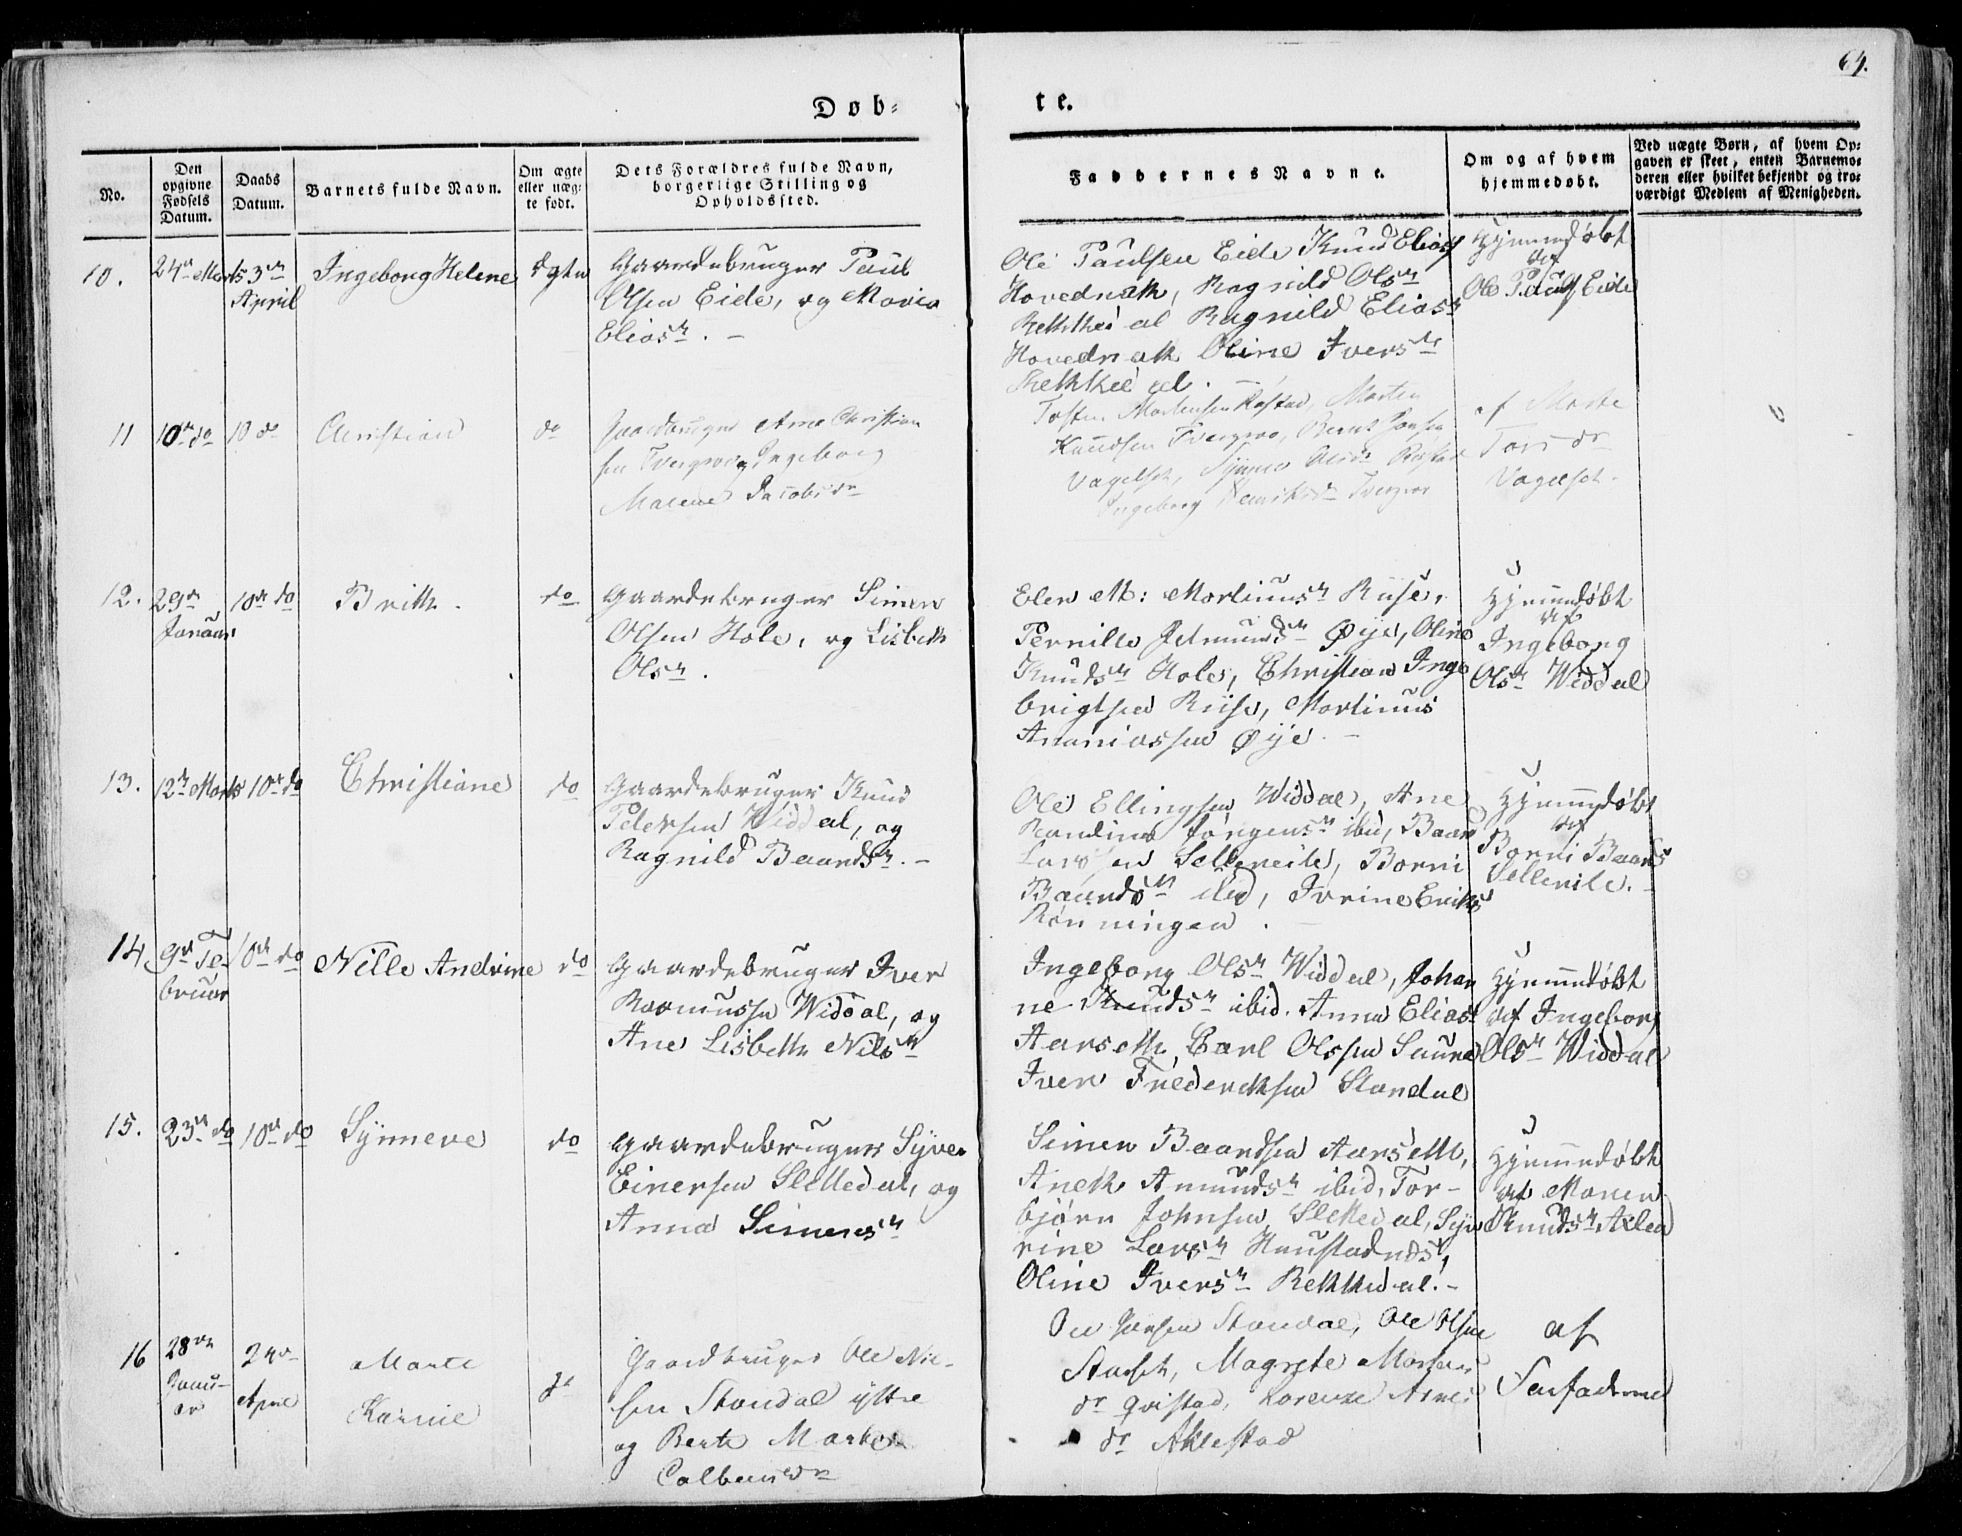 64.
Døb-
te.
No.
Den
opgivne
Fødsels
Datum.
Daabs
Datum.
Barnets fulde Navn.
Om ægte
eller uæg-
te født.
Dets Forældres fulde Navn,
borgerlige Stilling og
Opholdssted.
Faddernes Navne.
Om og af hvem
hjemmedøbt.
Ved uægte Børn, af hvem Op-
gaven er skeet, enten Barnemo-
deren eller hvilket bekjendt og tro-
værdigt Medlem af Menigheden.
10.
24de Marts
3die
April
Ingeborg Helene
Ægte
Gaardebruger Paul
Olsen Eide, og Maria
Eliasdr. -
Ole Paulsen Eide Knud Elias
Hovednak, Ragnild Olsdr
Rekkedal Ragnild Eliasdr
Hovednak Oline Iversdr
Rekkedal.
Hjemmedøbt
af
Ole Pauls Eide
11
10de do
10 do
Christian
do
Gaardbruger Arne Christian
sen Tvergroe og Ingeborg
Malene Jacobsdr
Mortensen Røstad, Morten
Knudsen Tvergroe, Bernt
Vagelset, Synneve Olsdr
Ingeborg Henriksdr Tvergroe
af Marte
dr
Vagelset.
12.
29de
Januar
10de do
Brith.
do
Gaardebruger Simen
Olsen Hole, og Lisbeth
Olsdr.
Elen M: Martinusdr Riise,
Pernille Øye, Oline
Knudsdr Hole, Christian Inge
brigtsen Riise, Martinus
Ananiassen Øye. -
Hjemmedøbt
af
Ingeborg
Olsdr Widdal
13.
12te Marts
10de do
Christiane
do
Gaardebruger Knud
Petersen Widdal, og
Ragnild Baardsdr. -
Ole Ellingsen Widdal, Ane
Randine Jørgensdr ibid, Baard
Larssen Sellereite, Borni
Baardsdr ibid, Ivrine Eriks
Rønningen.
Hjemmedøbt
af
Borni Baards
Sellerite. -
14.
9de Fe-
bruar
10de do
Nille Andrine
do
Gaardebruger Iver
Rasmussen Widdal, og
Ane Lisbeth Nilsdr
Ingeborg Olsdr Widdal, Johan
ne Knudsdr ibid. Anna Elias
Aarseth, Carl Olssen Saure
Iver Frederiksen Standal
Hjemmedøbt
af Ingeborg
Olsdr Widdal
15.
23de do
10de do
Synneve
do
Gaardebruger Syver
Einersen Slettedal, og
Anna Simensdr
Simen Baardsen Aarseth,
Aneth Amundsdr ibid, Tor-
bjørn Johnsen Slettedal, Syve
rine Larsdr
Oline Iversdr Rekkedal. -
Hjemmedøbt
af Maren
Knudsdr
16
28de
Janu-
ar
24de
April
Marte
Karine
do
Gaardbruger Ole Niel-
sen Standal yttre
og Berte Marte
Colbensdr
Jensen Standal, Ole Olsen
Magrete
dr Qvistad, Lorense Arnes
dr Aklestad
af